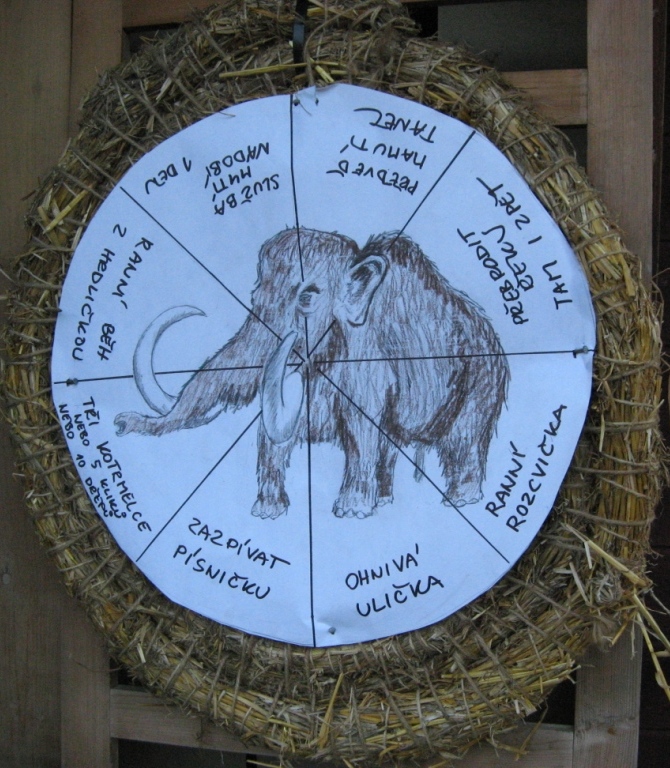 PŘEDVEĎ
MAMUTÍ
TANEC
PŘEBRODIT
ŘEKU
TAM I ZPĚT
RANNÝ
ROZCVIČKA
OHNIVÁ
ULIČKA
ZAZPÍVAT
PÍSNIČKU
TŘI KOTRMELCE
NEBO 5 KLIKŮ
NEBO 10 DŘEPŮ
RANNÍ BĚH
Z HEDLIČKOU
SLUŽBA
MYTÍ
NÁDOBÍ
1 DEN